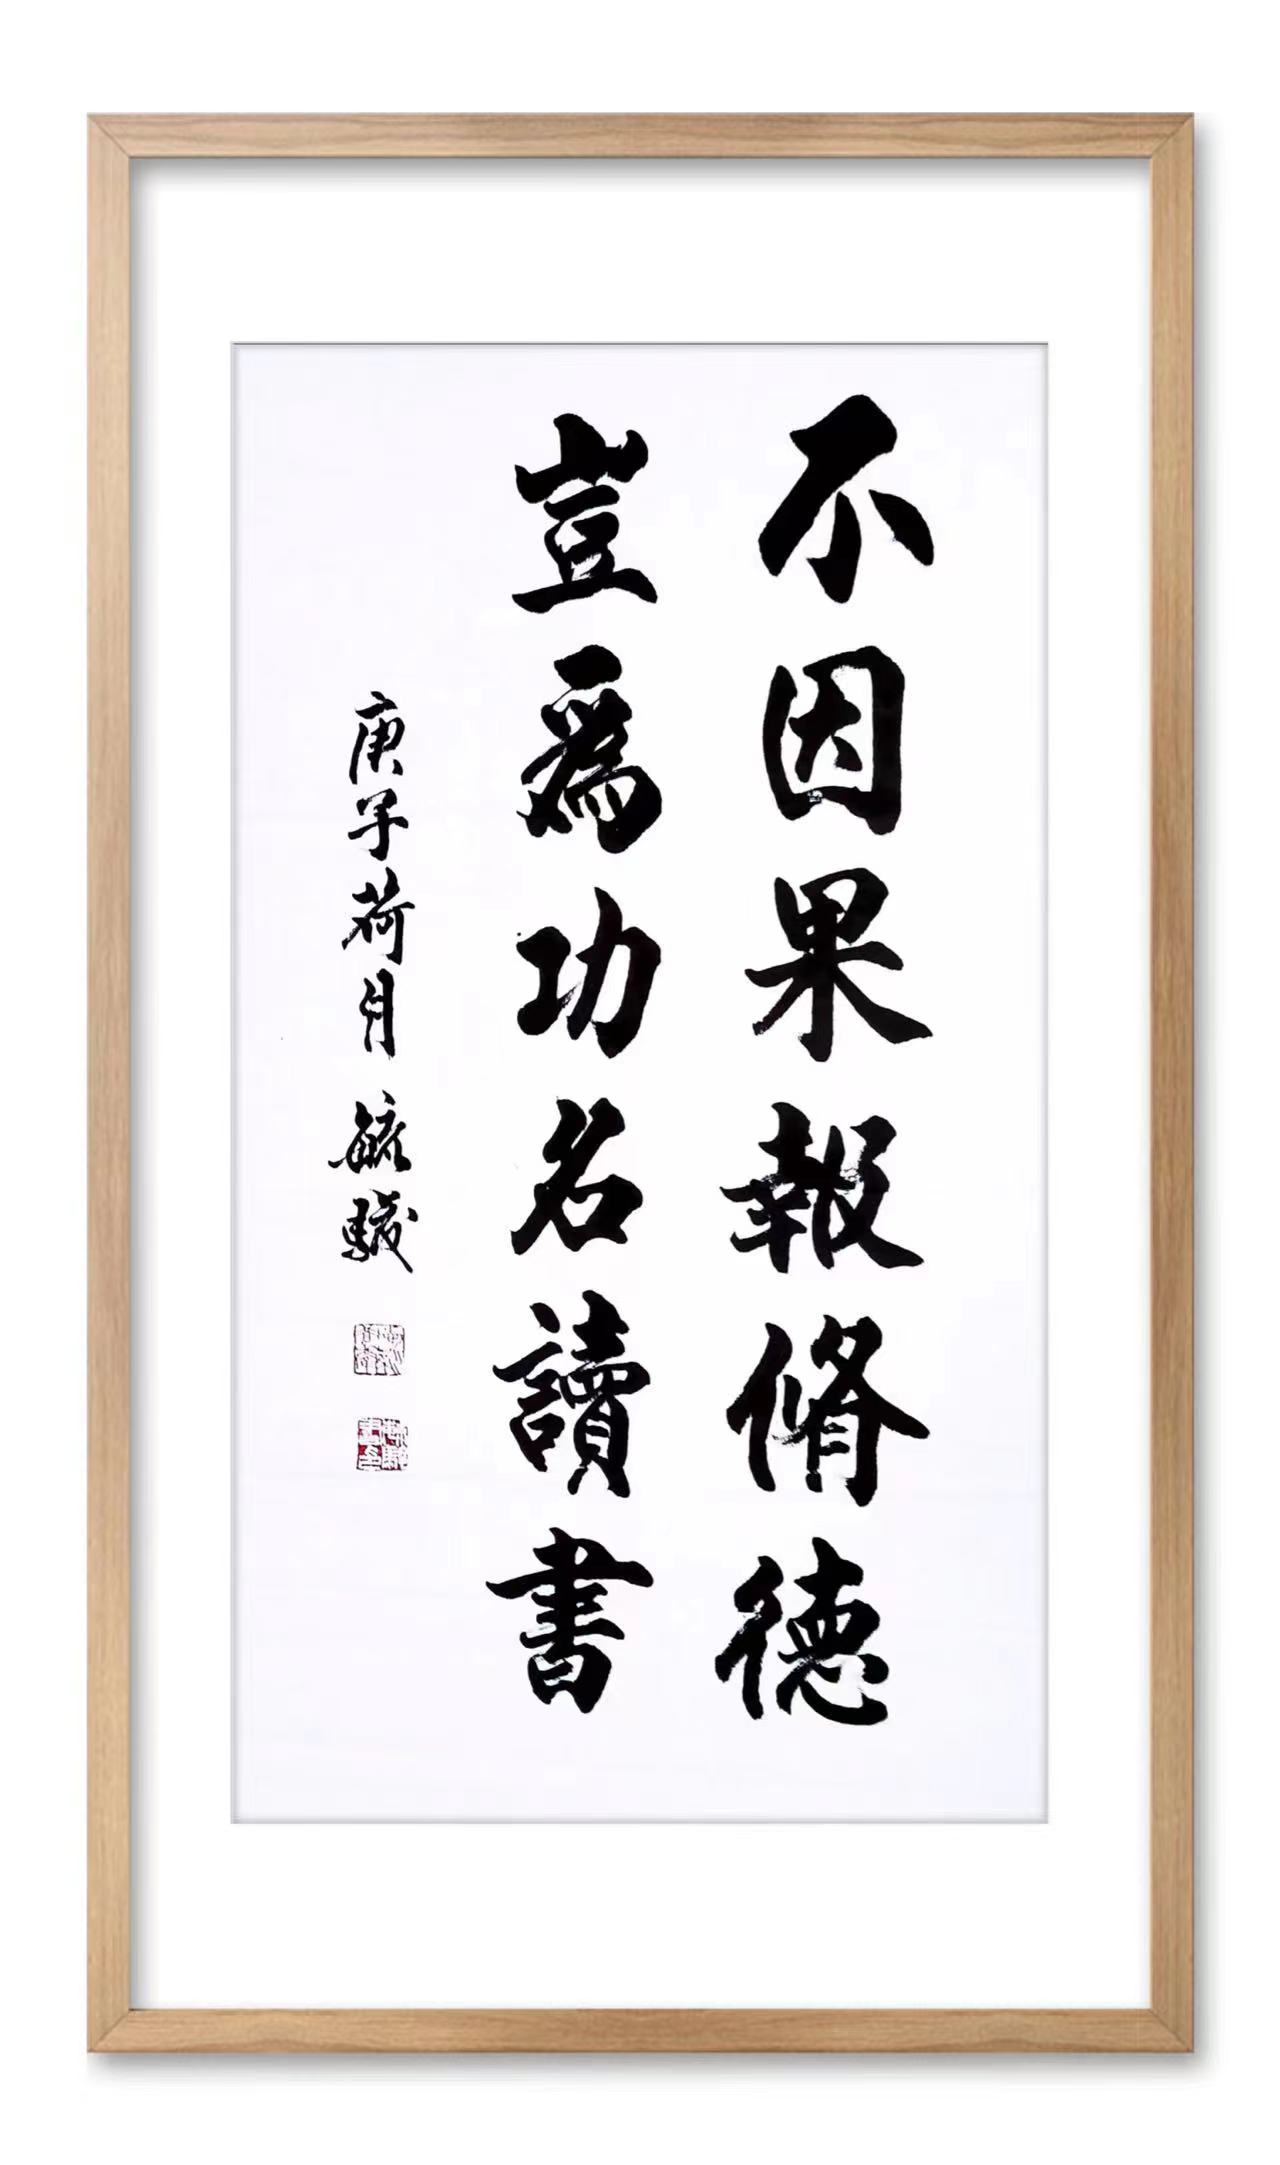 不因果報脩德
豈爲功名讀書
庚子荷月 毓駿